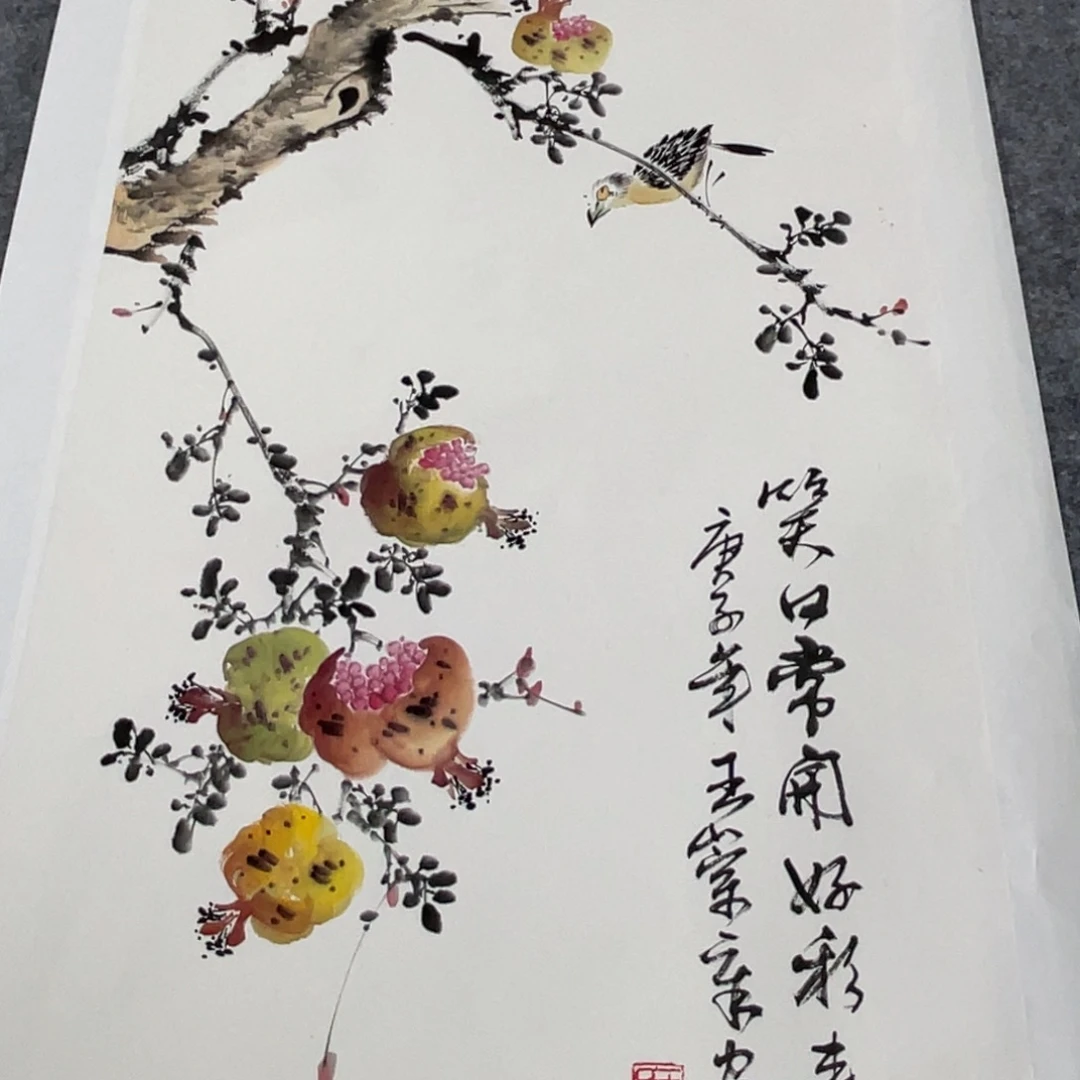 笑口常開好彩
庚子年王崇章